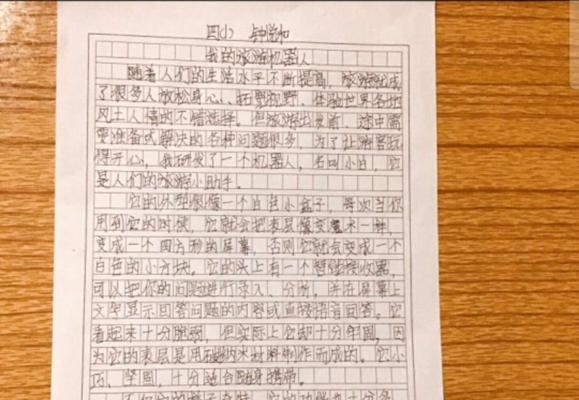 四(2) 钟悦和
我的旅游机器人
随着人们的生活水平不断提高,旅游就成
了很多人放松身心、拓宽视野、体验世界各地
风土人情的不错选择。但旅游出发前、途中需
要准备或解决的各种问题很多,为了让游客玩
得开心,我研发了一个机器人,名叫小白,它
是人们的旅游小助手。
它的外型很像一个白色小盒子,每次当你
用到它的时候,它就会把表层像变魔术一样,
变成一个四方形的屏幕,否则它就会变成一个
白色的小方块。它的头上有一个智能接收器,
可以把你的问题进行录入、分析,并在屏幕上
文字显示回答问题的内容或直接语音回答。它
看起来十分脆弱,但实际上它却十分牢固,因
为它的表层是用纳米材料制作而成的。它小
巧、坚固,十分适合随身携带。
不仅它的样子奇特,它的功能也十分多